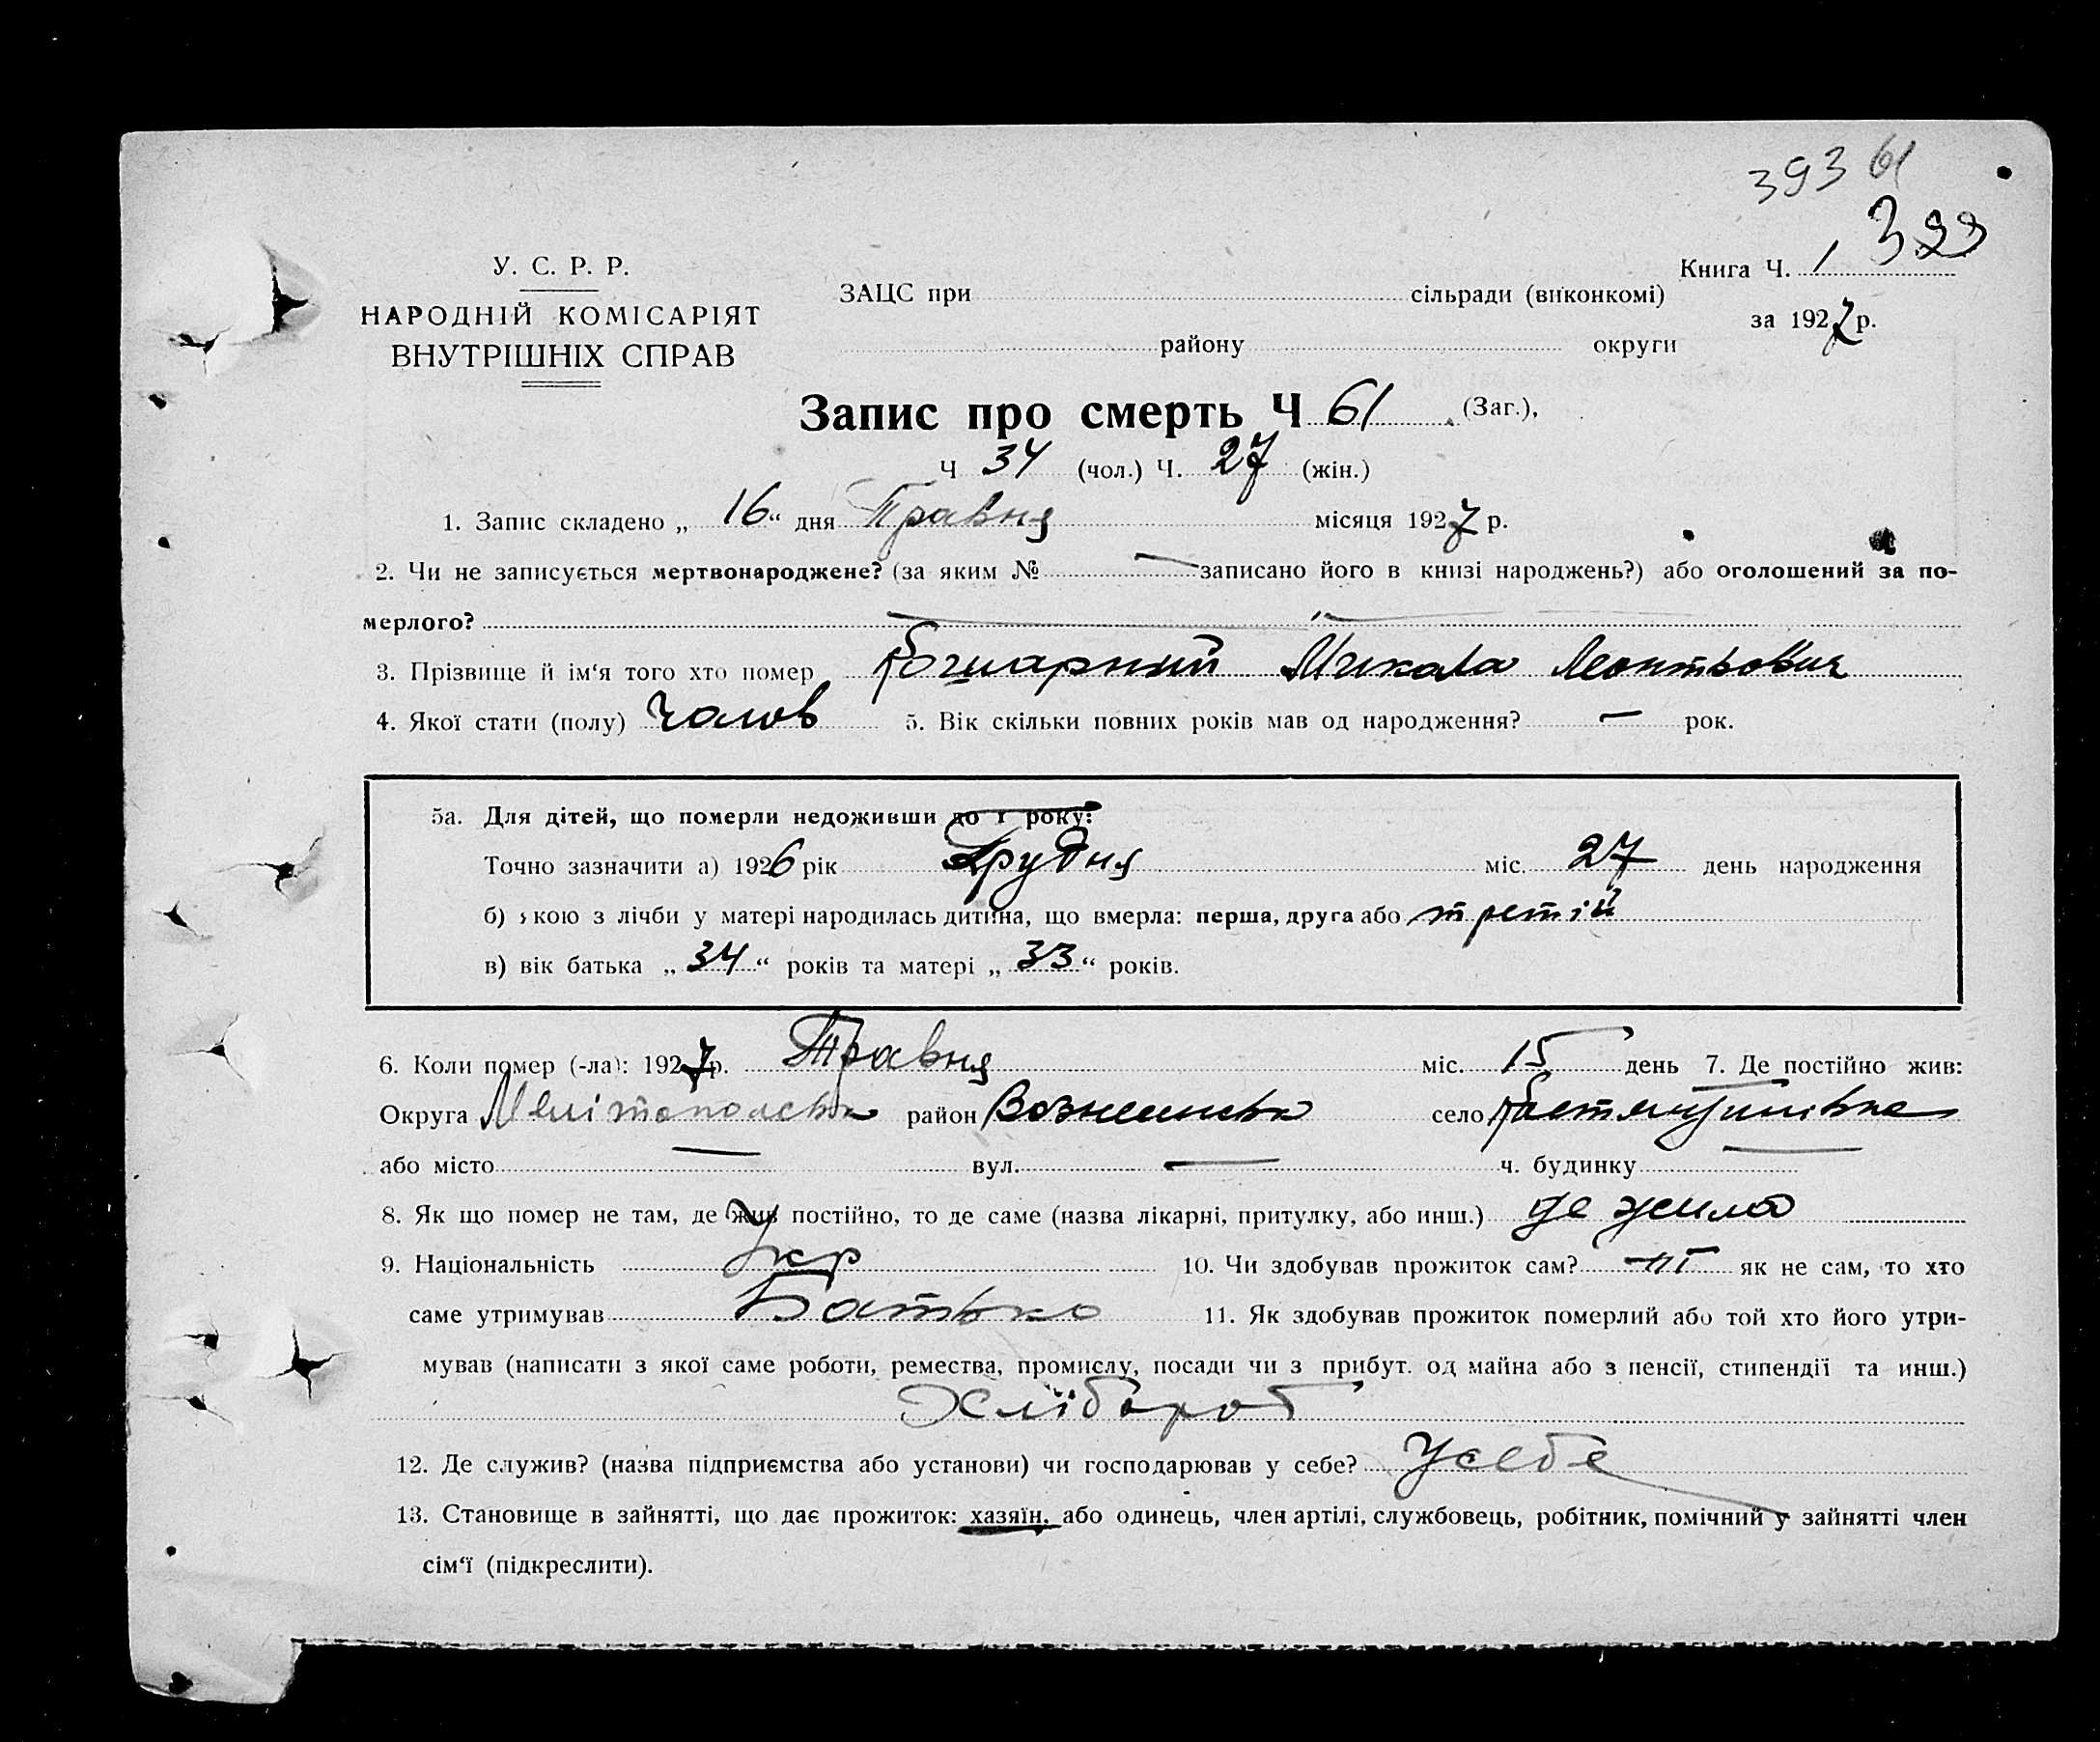 393 61
399
У. С. Р. Р.
НАРОДНІЙ КОМІСАРІЯТ
ВНУТРІШНІХ СПРАВ
ЗАЦС при сільради (виконкомі)
району округи
Книга Ч. 1
за 1927 р.
Запис про смерть Ч 61 (Заг.),
Ч 34 (чол.) Ч. 27 (жін.)
1. Запис складено „ 16 “ дня Травня місяця 1927 р.
2. Чи не записується мертвонароджене? (за яким № — записано його в книзі народжень?) або оголошений за по-
мерлого?
3. Прізвище й ім‘я того хто помер Микола Леонтьович
4. Якої стати (полу) чолов 5. Вік скільки повних років мав од народження? — рок.
5а. Для дітей, що померли недоживши до 1 року:
Точно зазначити а) 1926 рік Грудня міс. 27 день народження
б) якою з лічби у матері народилась дитина, що вмерла: перша, друга або третій
в) вік батька „ 34 “ років та матері „ 33 “ років.
6. Коли помер (-ла): 1927 р. Травня міс. 15 день 7. Де постійно жив:
Округа Мелітопольськ район Вознесенськ село
або місто — вул. — ч. будинку —
8. Як що помер не там, де жив постійно, то де саме (назва лікарні, притулку, або инш.) де жила
9. Національність Укр 10. Чи здобував прожиток сам? ні як не сам, то хто
саме утримував Батько 11. Як здобував прожиток померлий або той хто його утри-
мував (написати з якої саме роботи, ремества, промислу, посади чи з прибут. од майна або з пенсії, стипендії та инш.)
Хлібороб
12. Де служив? (назва підприємства або установи) чи господарював у себе? У себе
13. Становище в зайнятті, що дає прожиток: хазяїн, або одинець, член артілі, службовець, робітник, помічний у зайнятті член
сім‘ї (підкреслити).